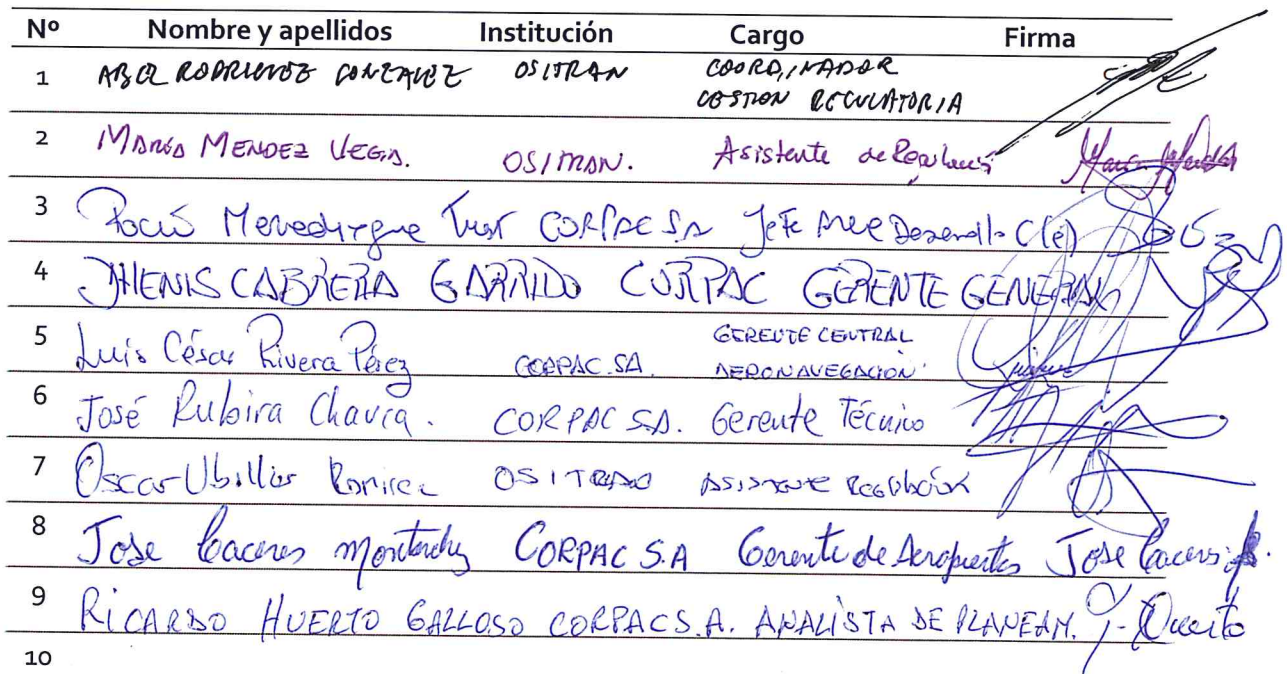 Nº Nombre y apellidos Institución Cargo Firma
1 ABEL RODRIGUEZ GONZALEZ OSITRAN COORDINADOR
GESTION REGULATORIA
2 MARÍA MENDEZ VEGA. OSITRAN. Asistente de
3 Rocío CORPAC S.A Jefe Area Desarrollo C(e)
4 JHENIS CABRERA GARRIDO CORPAC GERENTE GENERAL
5 Luis César Rivera Pérez CORPAC.SA. GERENTE CENTRAL
AERONAVEGACIÓN
6 José Rubira Chauca. CORPAC S.A. Gerente Técnico
7 Oscar Ubillus Ramirez OSITRAN ASISTENTE REGULACIÓN
8 Jose Caceres CORPAC S.A Gerente de Aeropuertos Jose Caceres
9 RICARDO HUERTO GALLOSO CORPAC S.A. ANALISTA DE PLANEAM.
10